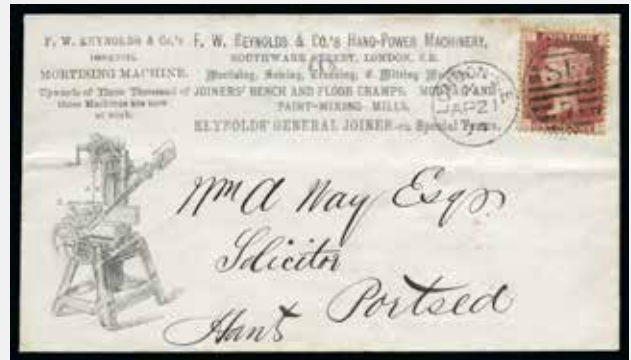 F. W. REYNOLDS & Co.'s
IMPROVED
MORTISING MACHINE.
Upwards of Three Thousand of
these Machines are now
at work.
F. W. REYNOLDS & CO.'S HAND-POWER MACHINERY,
SOUTHWARK STREET, LONDON, S.E.
Mortising, Boring, Tenoning, & Mitring
JOINERS' BENCH AND FLOOR CRAMPS. AND
PAINT-MIXING MILLS,
REYNOLDS' GENERAL JOINER—on Special Terms.
LONDON
AP 21
POSTAGE
Wm A Way Esqr
Solicitor
Portsed
Hants